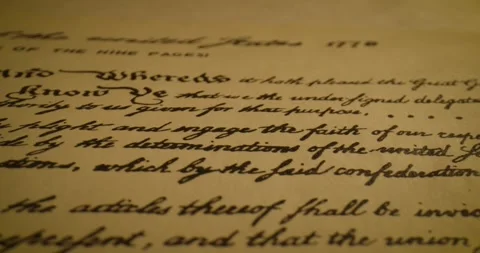 the united States 1778
OF THE NINE PAGES)
And Whereas it hath pleased the Great G
Know Ye that we the undersigned delegate
thority to us given for that purpose, . . . . .
plight and engage the faith of our respe
de by the determinations of the united
ations, which by the said confederation
the articles thereof shall be invio
represent, and that the union